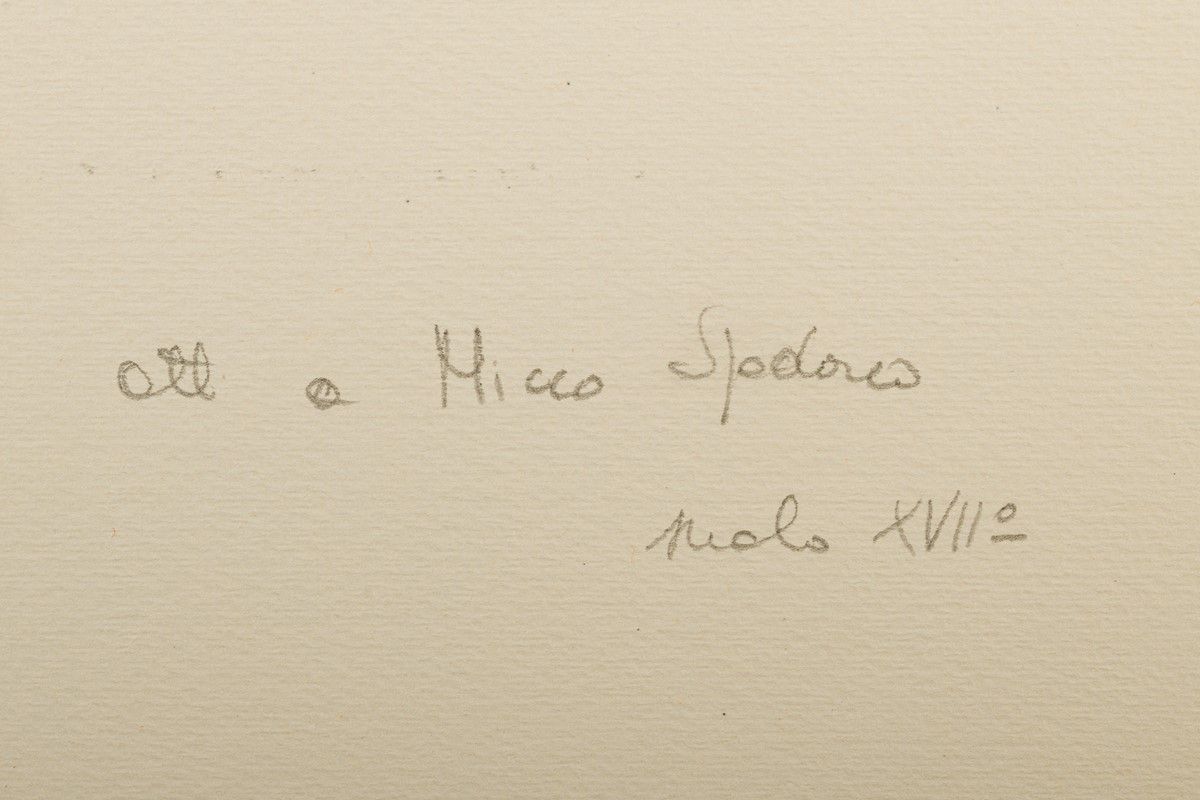 att a Micco Spadaro
secolo XVIIº